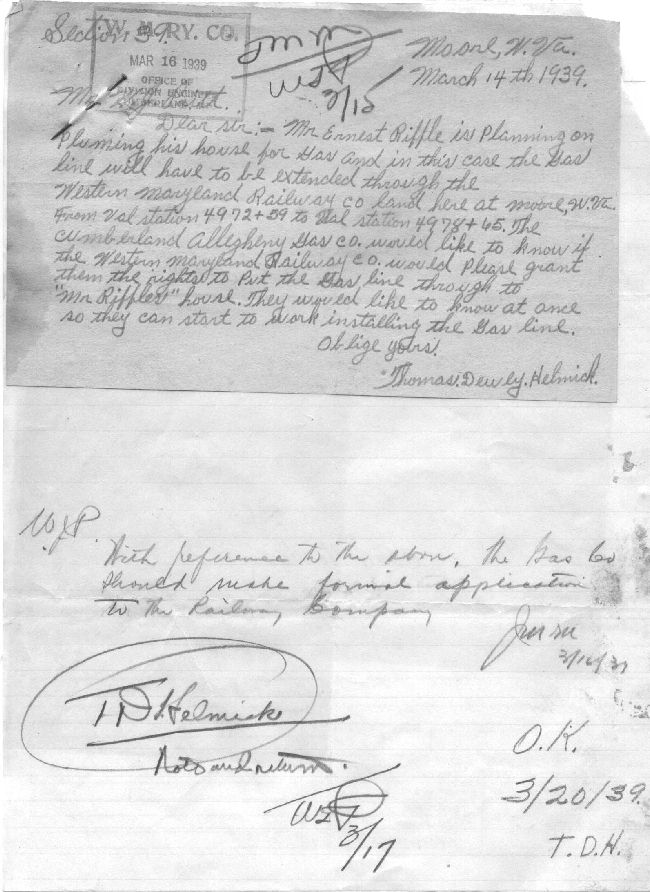 Section 39.
W. MARY. CO.
MAR 16 1939
OFFICE OF
DIVISION ENGINEER
CUMBERLAND
JMM
WIP
3/15
Moore, W. Va.
March 14th 1939.
Mr
Dear sir:- Mr Ernest Riffle is Planning on
Pluming his house for Gas and in this case the Gas
line will have to be extended through the
Western Maryland Railway co land here at moore, W. Va.
From Val station 4972+59 to Val station 4978+65. The
Cumberland Allegheny Gas co. would like to know if
the Western Maryland Railway co. would Please grant
them the rights to Put the Gas line through to
"Mr Riffles" house. They would like to know at once
so they can start to work installing the Gas line.
Oblige yours.
Thomas. Dewey. Helmick.
WIP.
With reference to the above, the Gas Co
should make formal application
to the Railway Company
JMM
3/16/39
T D Helmick
Note and return.
WIP
3/17
O.K.
3/20/39.
T.D.H.